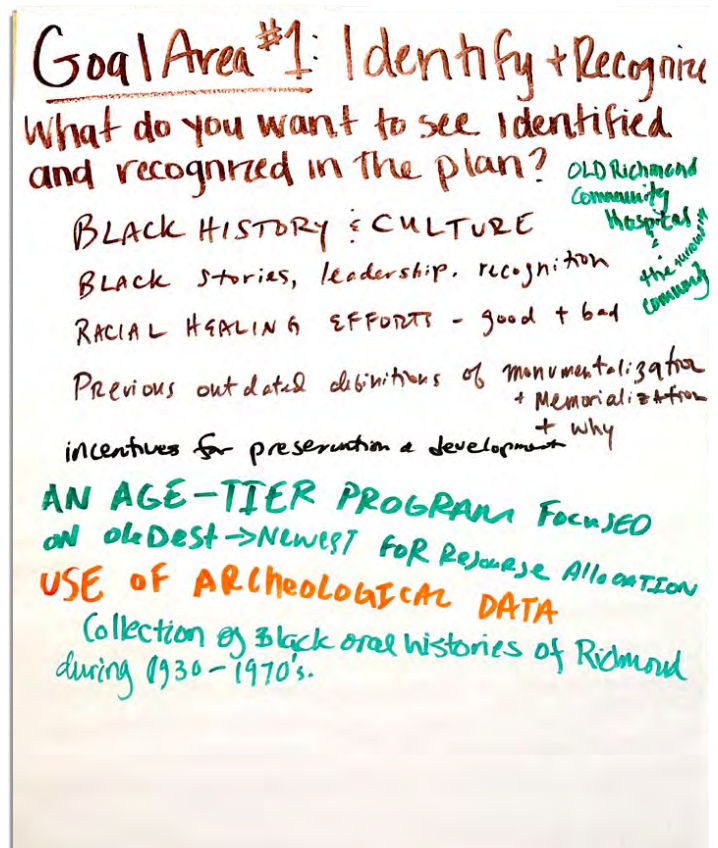 Goal Area #1: Identify + Recognize
What do you want to see identified
and recognized in the plan?
OLD Richmond
Community
Hospital
&
the surrounding
community
BLACK HISTORY & CULTURE
BLACK stories, leadership, recognition
RACIAL HEALING EFFORTS - good + bad
Previous outdated definitions of monumentalization
+ Memorialization
+ why
incentives for preservation & development
AN AGE-TIER PROGRAM FOCUSED
ON OLDEST → NEWEST FOR Resourse Allocation
USE OF ARCHEOLOGICAL DATA
Collection of Black oral histories of Richmond
during 1930-1970's.